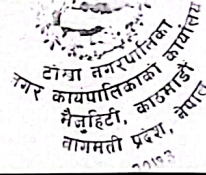 टोखा नगरपालिका
नगर कार्यपालिकाको कार्यालय
मैजुहिटी, काठमाडौं
वागमती प्रदेश, नेपाल